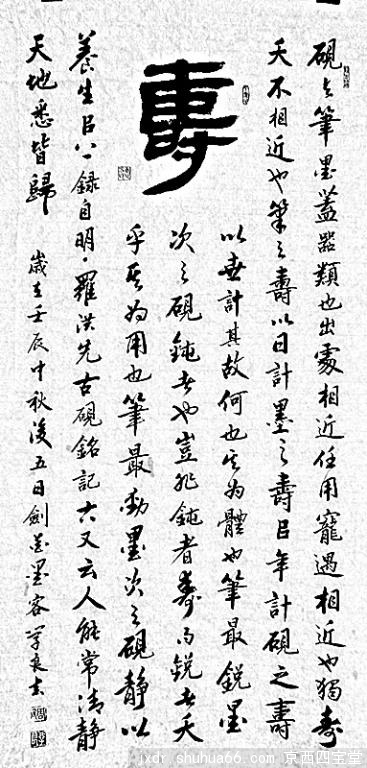 壽
硯與筆墨蓋器類也出處相近任用寵遇相近也獨壽
夭不相近也筆之壽以日計墨之壽㠯年計硯之壽
以世計其故何也其為體也筆最銳墨
次之硯鈍者也豈非鈍者壽而銳者夭
乎其為用也筆最動墨次之硯靜以
養生㠯上錄自明·羅洪先古硯銘記又云人能常清靜
天地悉皆歸 歲在壬辰中秋後五日劍墨客學良書
jxdr.shuhua66.com 京西四宝堂